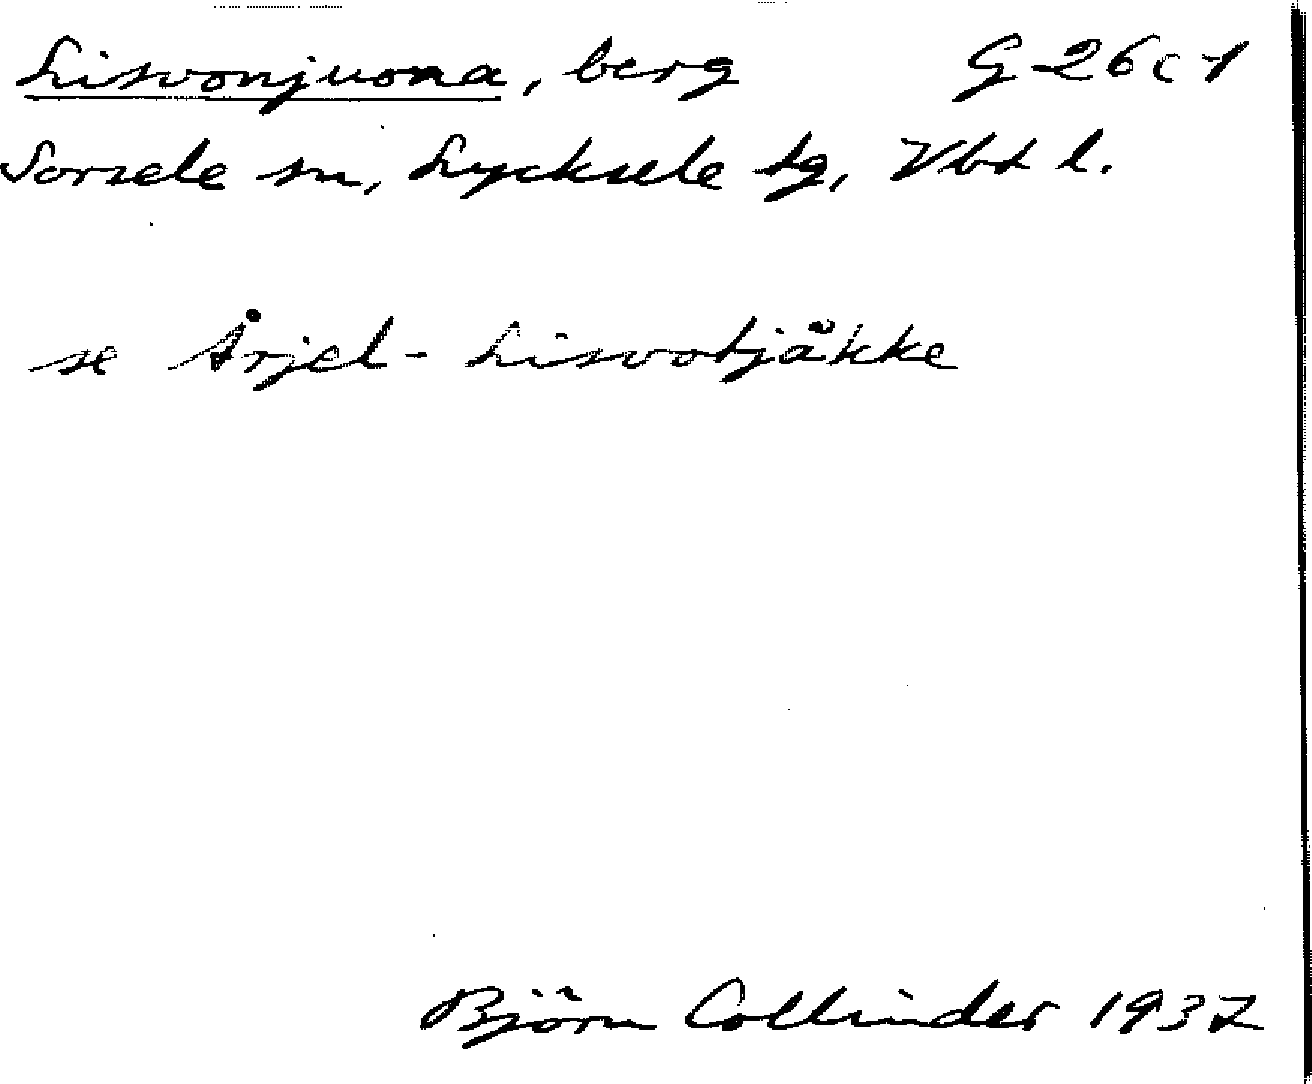 Lisvonjuona, berg G 26c 1
Sorsele sn, Lycksele tg, Vbt l.
se Årjel-Lisvotjåkke
Björn Collinder 1937